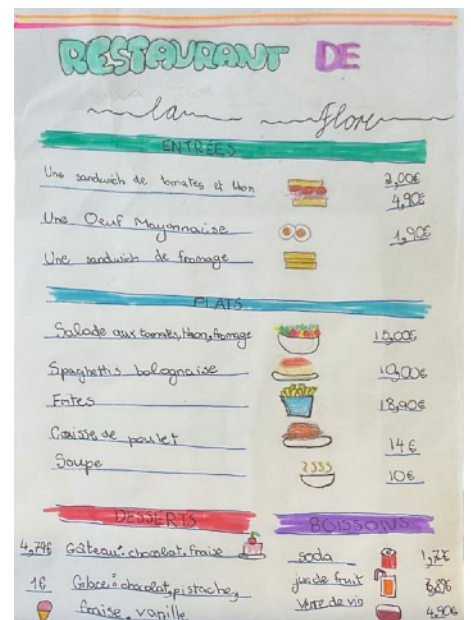 RESTAURANT DE
la flore
ENTRÉES
Une sandwich de tomates et thon 2,00€
4,90€
Une Oeuf Mayonnaise 1,90€
Une sandwich de fromage
PLATS
Salade aux tomates, thon, fromage 15,00€
Spaghettis bolognaise 10,00€
Frites 18,90€
Cuisse de poulet 14€
Soupe 10€
DESSERTS BOISSONS
4,79€ Gâteau: chocolat, fraise soda
1€ Glace: chocolat, pistache, jus de fruit
fraise, vanille verre de vin 4,90€